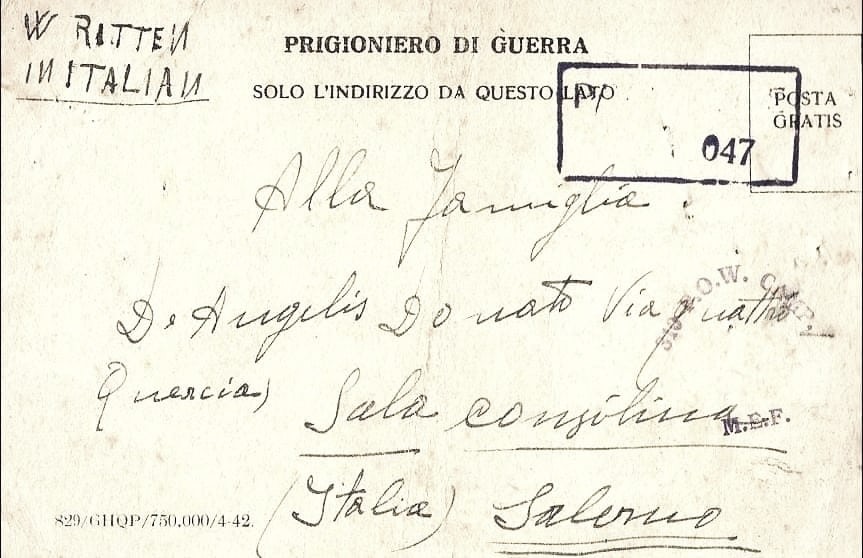 WRITTEN
IN ITALIAN
PRIGIONIERO DI GUERRA
SOLO L'INDIRIZZO DA QUESTO LATO
POSTA
GRATIS
P/
047
Alla Famiglia
De Angelis Donato Via quattro
Quercia)
Sala consilina
(Italia) Salerno
P.O.W. CAMP.
M.E.F.
829/GHQP/750.000/4-42.